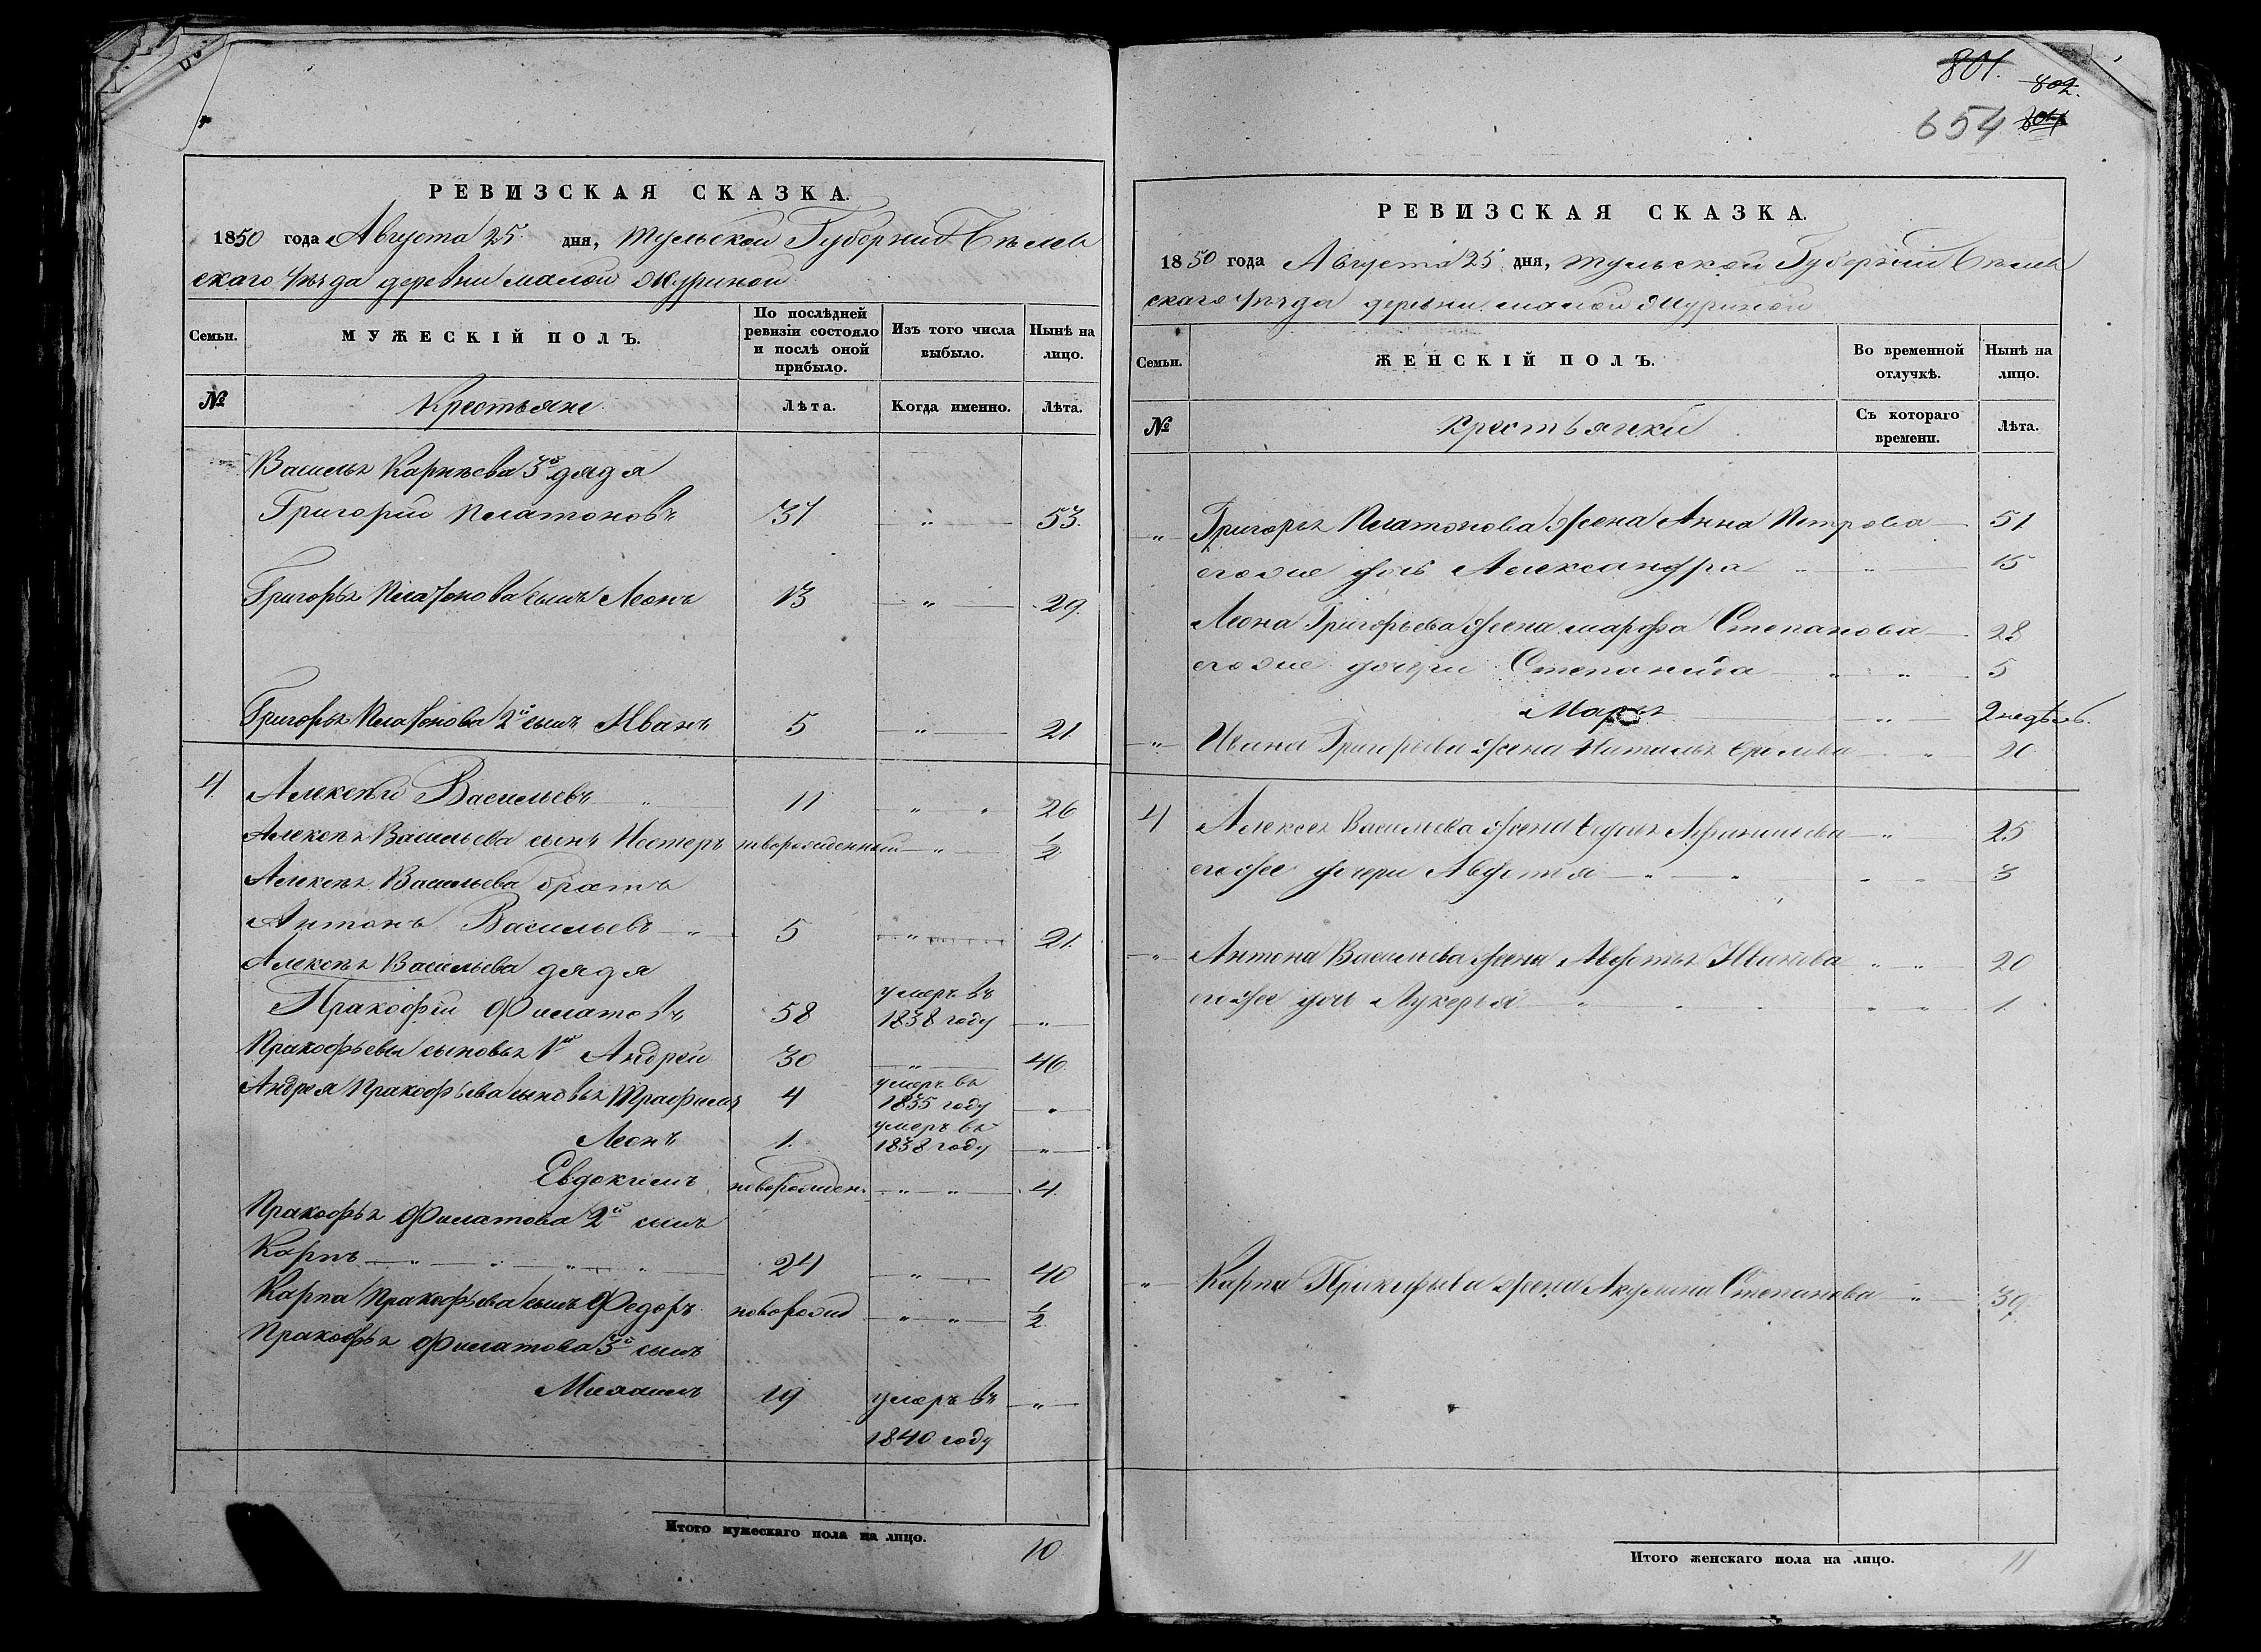 801.
802.
654
РЕВИЗСКАЯ СКАЗКА.
1850 года Августа 25. дня, Тульской Губерніи Бѣлев
скаго уѣзда деревни малой Журиной
Семьи.
МУЖЕСКІЙ ПОЛЪ.
По послѣдней ревизіи состояло и послѣ оной прибыло.
Изъ того числа выбыло.
Нынѣ на лицо.
№
Крестьяне
Лѣта.
Когда именно.
Лѣта.
Василья Карнѣева 3й дядя
Григорій Платоновъ 37 — „ — 53.
Григорья Платонова сынъ Леонъ 13 — „ — 29.
Григорья Платонова 2й сынъ Иванъ 5 — „ — 21
4. Алексѣй Васильевъ „ 11 „ 26
Алексѣя Васильева сынъ Нестеръ новорожденный — „ — 1/2
Алексѣя Васильева братъ
Антонъ Васильевъ — „ 5 „ 21.
Алексѣя Васильева дядя
Пракофій Филатовъ 58 умеръ въ 1838 году — „ —
Пракофьевы сыновья 1й Андрей 30 — „ — 46.
Андрея Пракофьева сыновья Трафимъ 4 умеръ въ 1835 году — „ —
Леонъ 1. умеръ въ 1838 году — „ —
Евдокимъ новорожден. — „ — „ — 4.
Пракофья Филатова 2й сынъ
Карпъ — „ — „ — „ — „ 24 — „ — 40
Карпа Пракофьева сынъ Федоръ новорожд — „ — „ — 1/2
Пракофья Филатова 3й сынъ
Михаилъ 19 умеръ въ 1840 году — „ —
Итого мужескаго пола на лицо. 10
РЕВИЗСКАЯ СКАЗКА.
1850 года Августа 25 дня, Тульской Губерніи Бѣлев
скаго уѣзда деревни малой Журиной
Семьи.
ЖЕНСКІЙ ПОЛЪ.
Во временной отлучкѣ.
Нынѣ на лицо.
№
Крестьянки
Съ котораго времени.
Лѣта.
— „ — Григорья Платонова жена Анна Петрова — 51
его же дочь Александра „ „ — 15
Леона Григорьева жена Марфа Степанова — 28
его же дочери Степанида — „ — „ — 5
Марья — „ — 2 недѣль.
— „ — Ивана Григорьева жена Наталья — „ — 20
4 Алексея Васильева жена — „ — 25
его же дочери Авдотья — „ — „ „ — „ — 3
— „ — Антона Васильева жена Авдотья Иванова „ — „ — 20
его же дочь Лукерья „ „ — „ — 1.
„ Карпа Пракофьева жена Акулина Степанова — „ — 39.
Итого женскаго пола на лицо. 11